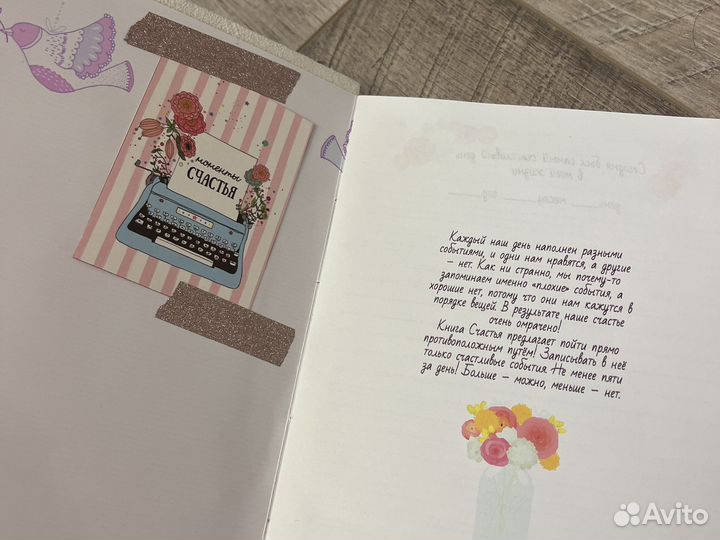 моменты
СЧАСТЬЯ
Сегодня был самый счастливый день
в моей жизни
день месяц год
Каждый наш день наполнен разными
событиями, и одни нам нравятся, а другие
– нет. Как ни странно, мы почему-то
запоминаем именно «плохие» события, а
хорошие нет, потому что они нам кажутся в
порядке вещей. В результате наше счастье
очень омрачено!
Книга Счастья предлагает пойти прямо
противоположным путём! Записывать в неё
только счастливые события. Не менее пяти
за день! Больше – можно, меньше – нет.
Avito